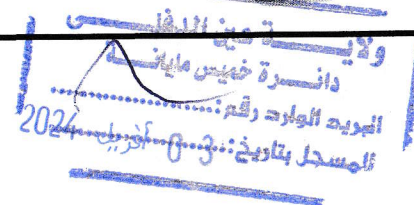 ولايـــة عين الدفلـــى
دائـــرة خميس مليانـــة
البريد الوارد رقم:..........................
المسجل بتاريخ: 03 أفريل 2024